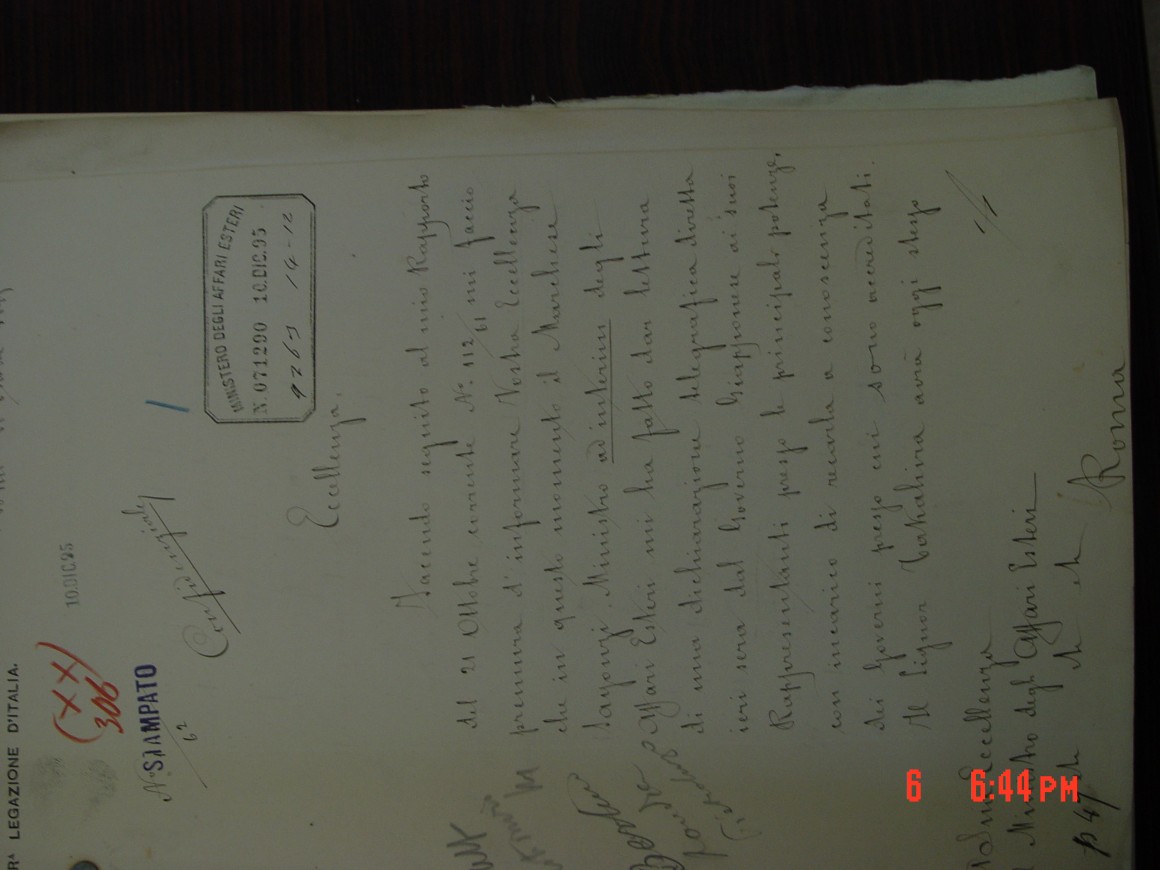 Rᴬ LEGAZIONE D'ITALIA.
(XX)
306
10.DIC.95
N.º STAMPATO
62
Confidenziale
MINISTERO DEGLI AFFARI ESTERI
N. 071290 10.DIC.95
9269 14-12
Eccellenza,
Facendo seguito al mio Rapporto
del 21 Ottobre corrente N. 112/61 mi faccio
premura d'informare Vostra Eccellenza
che in questo momento il Marchese
Sayonzi Ministro ad interim degli
Affari Esteri mi ha fatto dar lettura
di una dichiarazione telegrafica diretta
ieri sera dal Governo Giapponese ai suoi
Rappresentanti presso le principali potenze,
con incarico di recarla a conoscenza
dei Governi presso cui sono accreditati.
Il Signor Takahira avrà oggi stesso
A Sua Eccellenza
Ministro degli Affari Esteri
Roma
6 6:44 PM